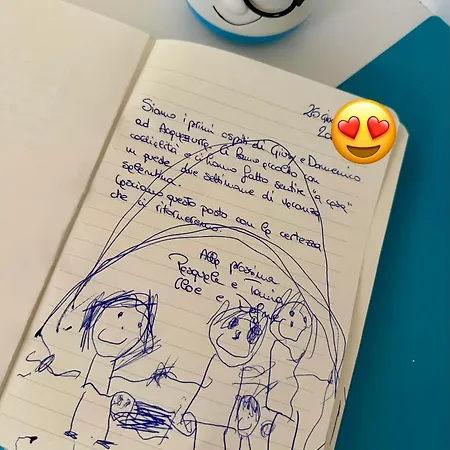 25 giu
20
Siamo i primi ospiti di Giusy e Domenico
ad Acquazzurra. Ci hanno accolto con
cordialità e ci hanno fatto sentire "a casa"
in queste due settimane di vacanza
salentina.
Lasciamo questo posto con la certezza
che vi ritorneremo.
Alla prossima
Pasquale e Tania
Cloe e